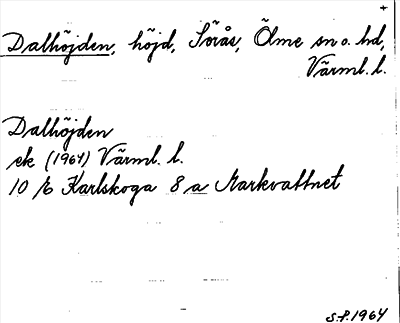 +
Dalhöjden, höjd, Sörås, Ölme sn o. hd,
Värml. l.
Dalhöjden
ek (1964) Värml. l.
10 E Karlskoga 8 a Markvattnet
S.F. 1964